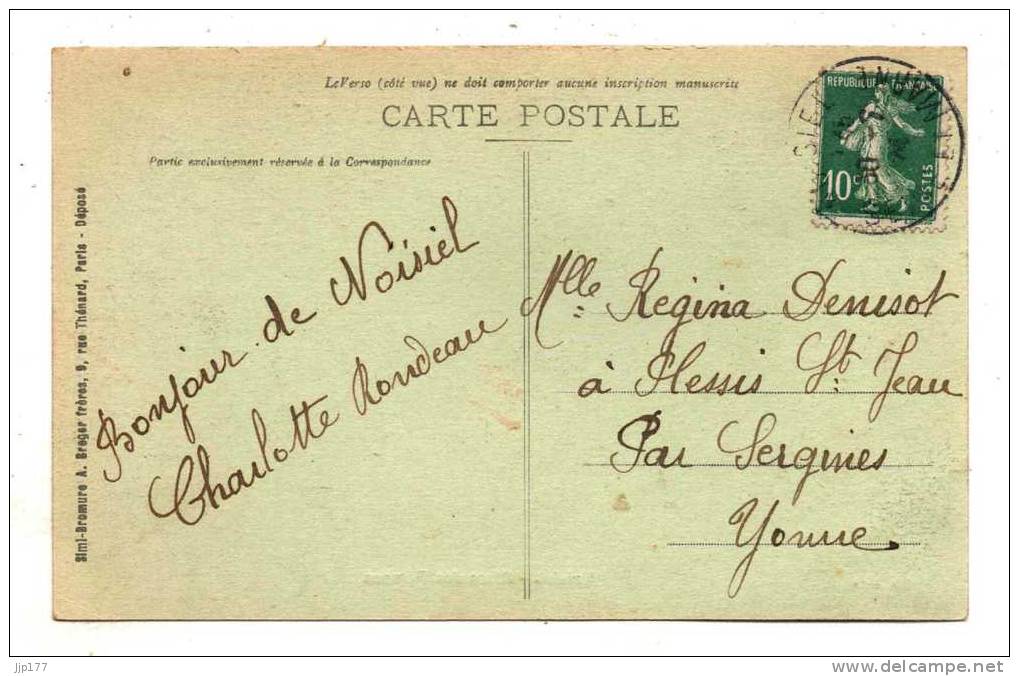 Le Verso (côté vue) ne doit comporter aucune inscription manuscrite
CARTE POSTALE
Partie exclusivement réservée à la Correspondance
REPUBLIQUE FRANÇAISE
10c
POSTES
Bonjour de Noisiel
Charlotte Rondeau
Mlle Regina Denisot
à Plessis St Jean
Par Sergines
Yonne
Simi-Bromure A. Breger frères, 9, rue Thénard, Paris - Déposé
jjp177
www.delcampe.net